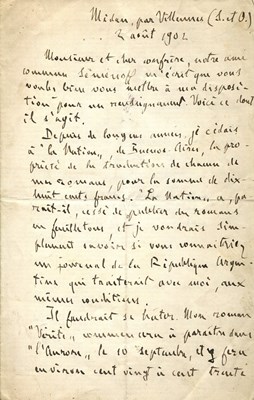 Médan, par Villennes (S. et O.)
2 août 1902
Monsieur et cher confrère, notre ami
commun Séménoff m'écrit que vous
voulez bien vous mettre à ma disposi-
tion pour un renseignement. Voici ce dont
il s'agit.
Depuis de longues années, je cédais
à "la Nation", de Buenos-Aires, la pro-
priété de la traduction de chacun de
mes romans, pour la somme de dix-
huit cents francs. "La Nation" a, pa-
raît-il, cessé de publier des romans
en feuilletons, et je voudrais sim-
plement savoir si vous connaîtriez
un journal de la République Argen-
tine qui traiterait avec moi, aux
mêmes conditions.
Il faudrait se hâter. Mon roman
"Vérité" commencera à paraître dans
"l'Aurore", le 10 septembre, et y fera
environ cent vingt à cent trente